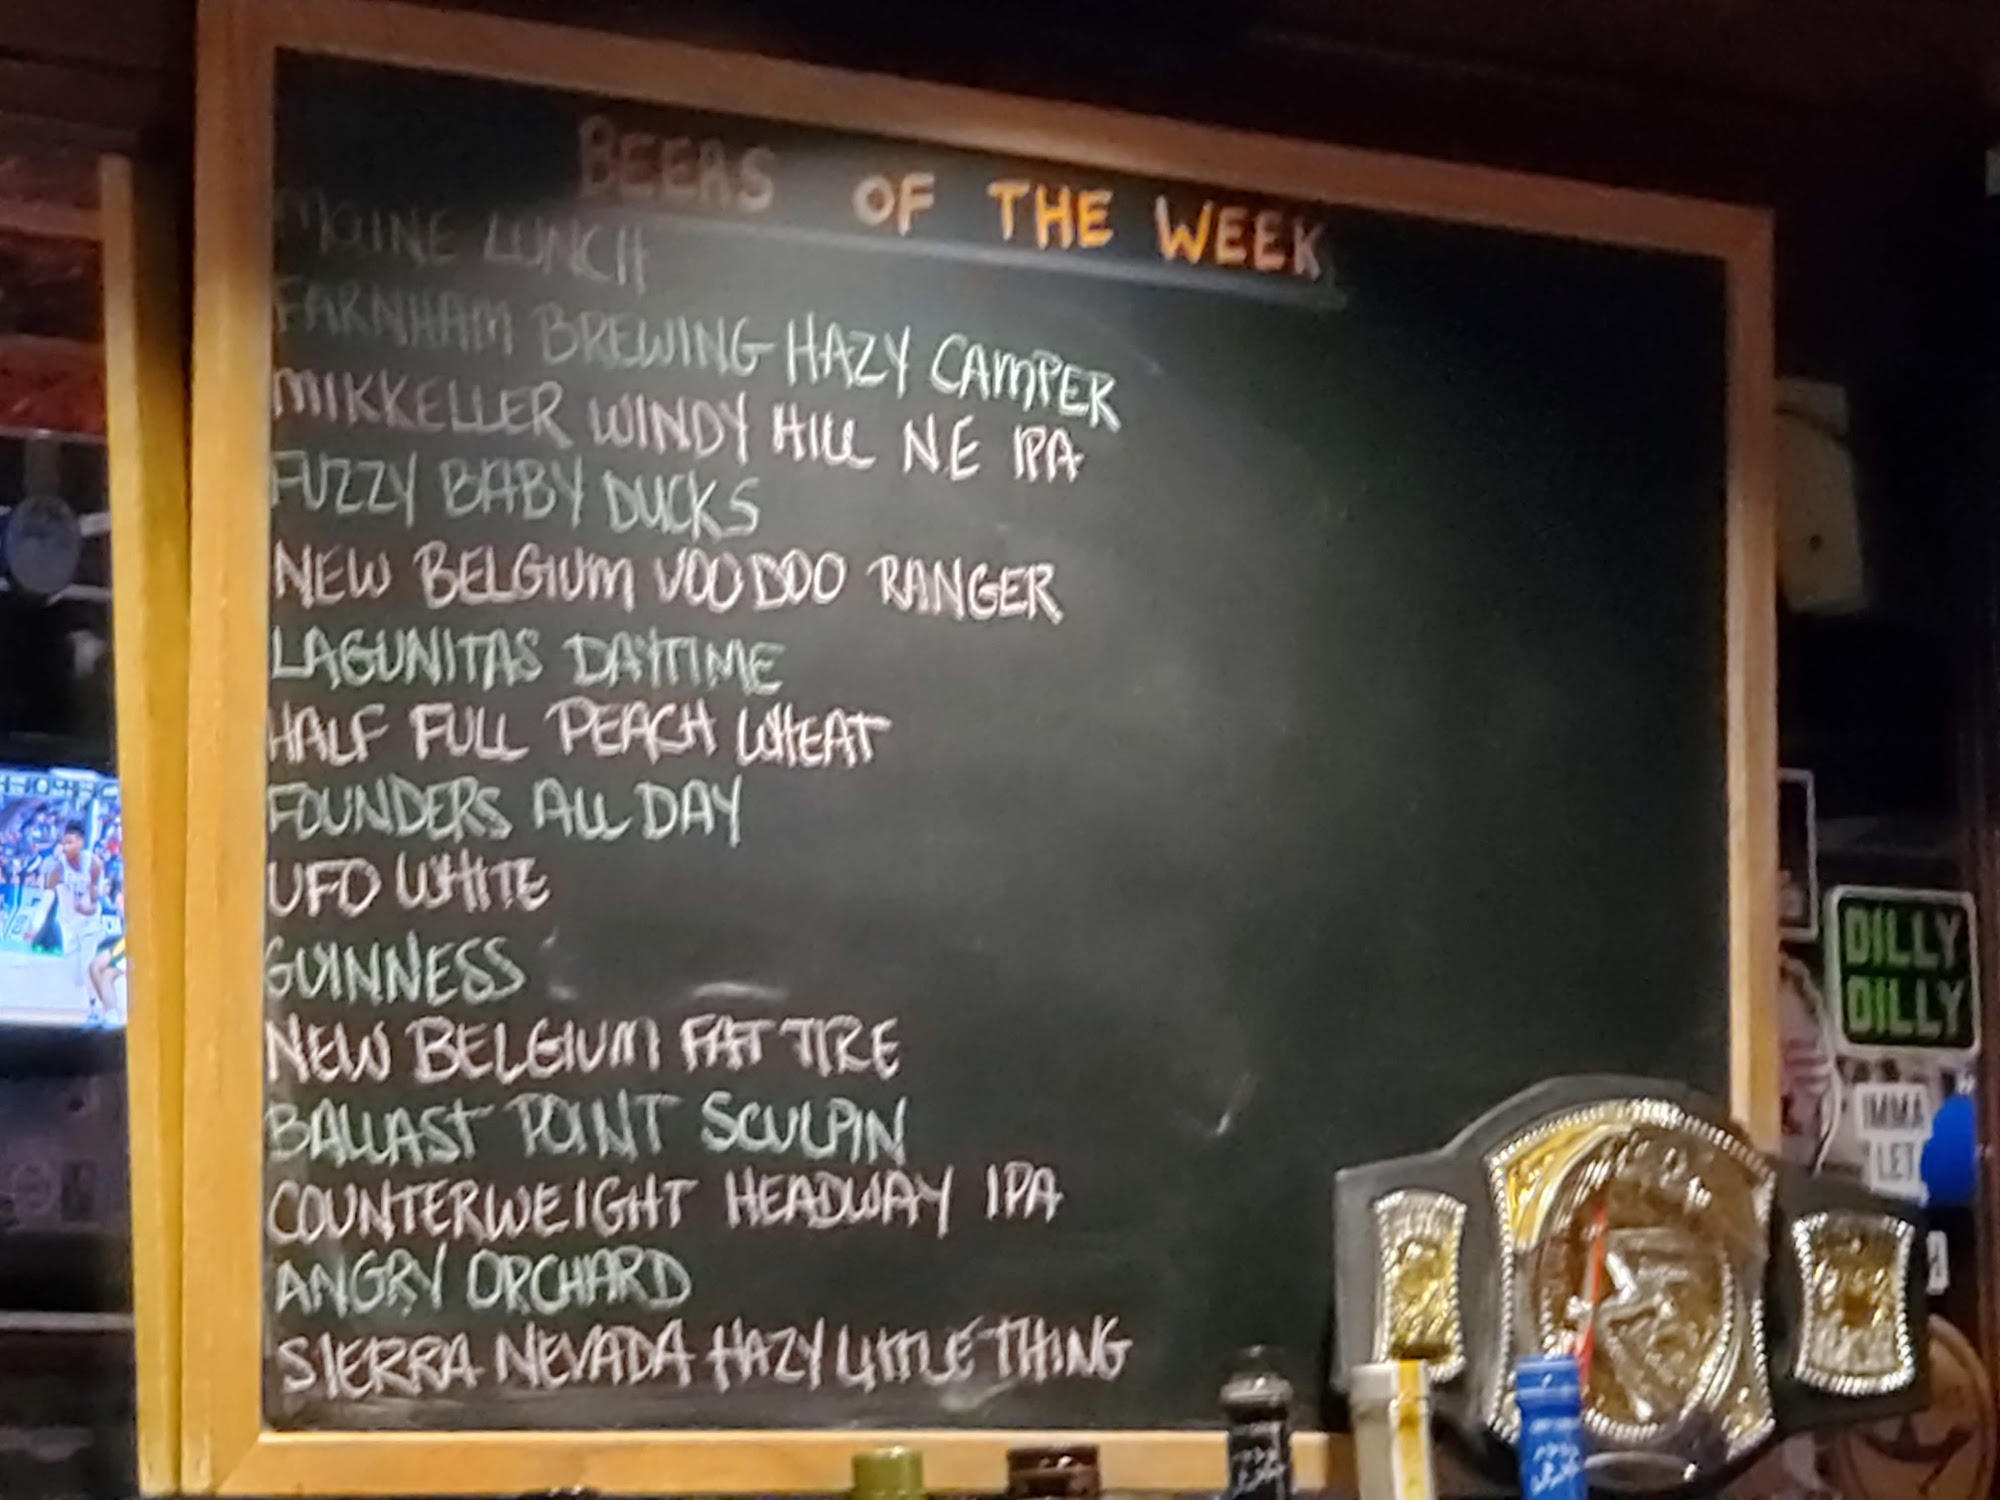 BEERS OF THE WEEK
MAINE LUNCH
FARNHAM BREWING HAZY CAMPER
MIKKELLER WINDY HILL NE IPA
FUZZY BABY DUCKS
NEW BELGIUM VOODOO RANGER
LAGUNITAS DAYTIME
HALF FULL PEACH WHEAT
FOUNDERS ALL DAY
UFO WHITE
GUINNESS
NEW BELGIUM FAT TIRE
BALLAST POINT SCULPIN
COUNTERWEIGHT HEADWAY IPA
ANGRY ORCHARD
SIERRA NEVADA HAZY LITTLE THING
DILLY
DILLY
IMMA
LET